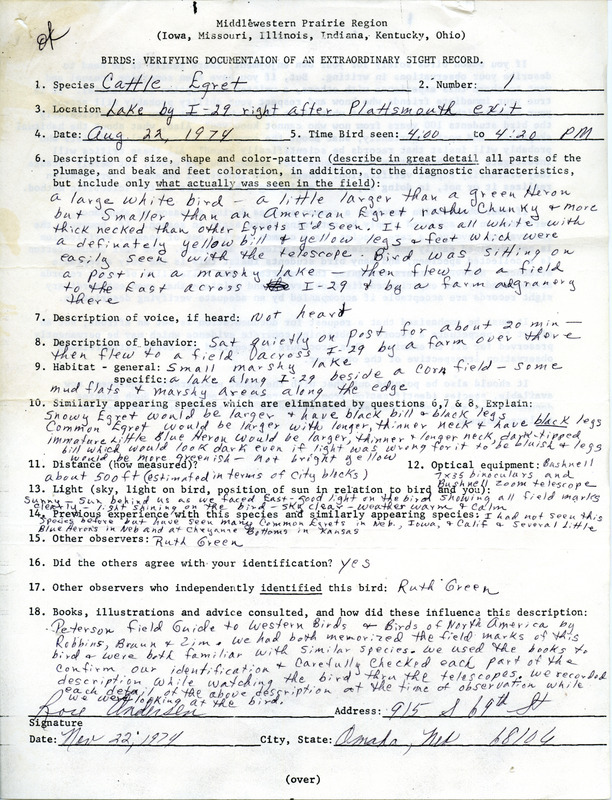 ok
Middlewestern Prairie Region
(Iowa, Missouri, Illinois, Indiana, Kentucky, Ohio)
BIRDS: VERIFYING DOCUMENTAION OF AN EXTRAORDINARY SIGHT RECORD.
1. Species Cattle Egret 2. Number: 1
3. Location Lake by I-29 right after Plattsmouth exit
4. Date: Aug. 22, 1974 5. Time Bird seen: 4:00 to 4:20 PM
6. Description of size, shape and color-pattern (describe in great detail all parts of the
plumage, and beak and feet coloration, in addition, to the diagnostic characteristics,
but include only what actually was seen in the field):
a large white bird - a little larger than a green Heron
but smaller than an American Egret rather chunky & more
thick necked than other Egrets I'd seen. It was all white with
a definately yellow bill & yellow legs & feet which were
easily seen with the telescope. Bird was sitting on
a post in a marshy lake - then flew to a field
to the East across I-29 & by a farm & granary
there
7. Description of voice, if heard: Not heard
8. Description of behavior: Sat quietly on post for about 20 min -
then flew to a field across I-29 by a farm over there
9. Habitat - general: Small marshy lake
specific: a lake along I-29 beside a corn field - some
mud flats & marshy areas along the edge
10. Similarly appearing species which are eliminated by questions 6,7 & 8, Explain:
Snowy Egret would be larger & have black bill & black legs
Common Egret would be larger with longer, thinner neck & have black legs
immature Little Blue Heron would be larger, thinner & longer neck, dark-tipped
bill which would look dark even if light was wrong for it to be bluish & legs
would be more greenish - not bright yellow
11. Distance (how measured)? 12. Optical equipment: Bushnell
about 500 ft (estimated in terms of City blocks) 7x35 binoculars and
Bushnell zoom telescope
13. Light (sky, light on bird, position of sun in relation to bird and you):
Sunny - sun behind us as we faced East - good light on the bird showing all field marks
clearly - light shining on the bird - sky clear - weather warm & calm
14. Previous experience with this species and similarly appearing species: I had not seen this
species before but have seen many Common Egrets in Neb., Iowa, & Calif & several Little
Blue Herons in Neb and at Cheyenne Bottoms in Kansas
15. Other observers: Ruth Green
16. Did the others agree with your identification? yes
17. Other observers who independently identified this bird: Ruth Green
18. Books, illustrations and advice consulted, and how did these influence this description:
Peterson Field Guide to Western Birds & Birds of North America by
Robbins, Bruun & Zim. We had both memorized the field marks of this
bird & were both familiar with similar species. We used the books to
confirm our identification & carefully checked each part of the
description while watching the bird thru the telescopes. We recorded
each detail of the above description at the time of observation while
we were looking at the bird.
Rose Andersen Address: 915 S 69th St
Signature
Date: Nov 22, 1974 City, State: Omaha, Neb 68106
(over)